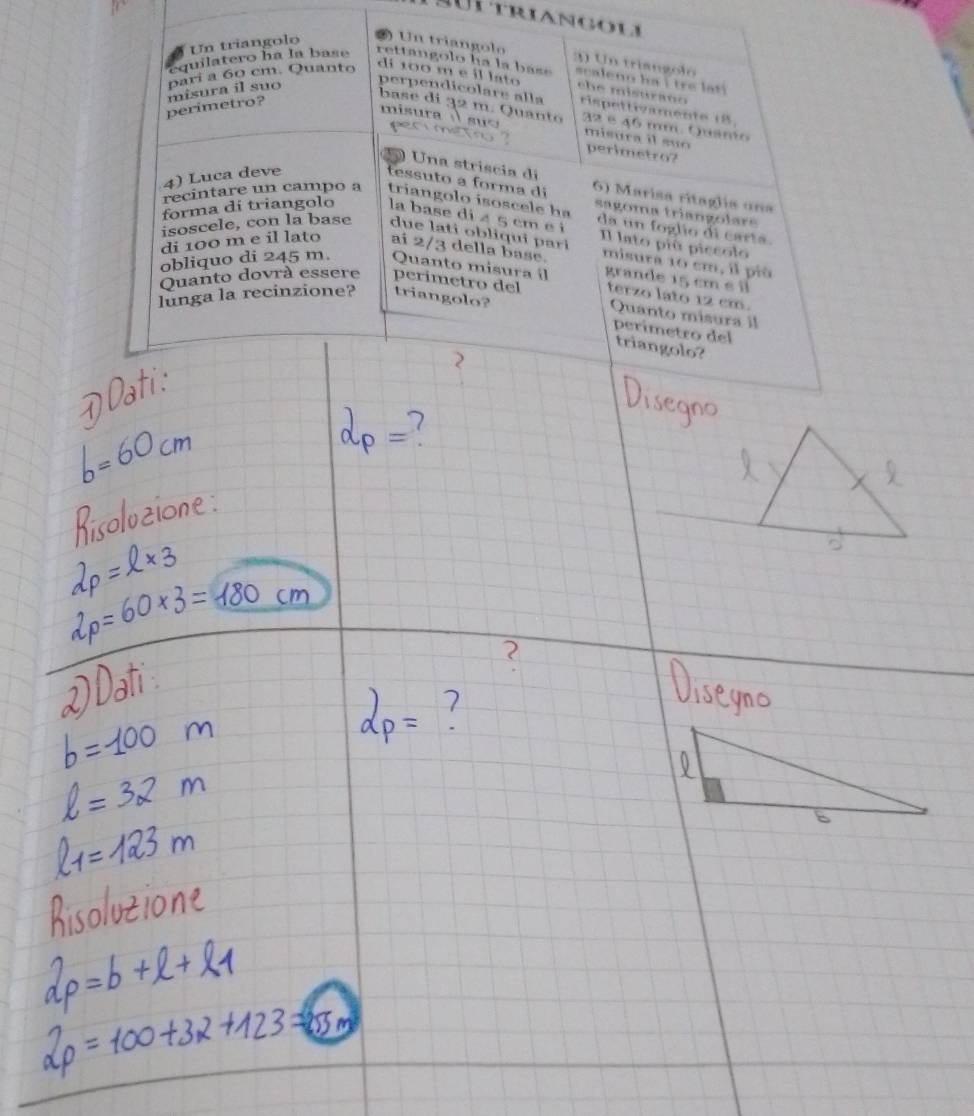 SUI TRIANGOLI
Un triangolo
equilatero ha la base
pari a 60 cm. Quanto
misura il suo
perimetro?
Un triangolo
rettangolo ha la base
di 100 m e il lato
perpendicolare alla
base di 32 m. Quanto
misura il suo
perimetro?
3) Un triangolo
scaleno ha i tre lati
che misurano
rispettivamente 18,
32 e 46 mm. Quanto
misura il suo
perimetro?
4) Luca deve
recintare un campo a
forma di triangolo
isoscele, con la base
di 100 m e il lato
obliquo di 245 m.
Quanto dovrà essere
lunga la recinzione?
5) Una striscia di
tessuto a forma di
triangolo isoscele ha
la base di 45 cm e i
due lati obliqui pari
ai 2/3 della base.
Quanto misura il
perimetro del
triangolo?
6) Marisa ritaglia una
sagoma triangolare
da un foglio di carta.
Il lato più piccolo
misura 10 cm, il più
grande 15 cm e il
terzo lato 12 cm.
Quanto misura il
perimetro del
triangolo?
1) Dati:
b=60 cm
?
2p=?
Disegno
l l
Risoluzione:
2p=l×3
2p=60×3=180 cm
2) Dati:
b=100 m
l=32 m
l1=123 m
?
2p= ?
Disegno
l
b
Risoluzione
2p=b+l+l1
2p=100+32+123=255 m